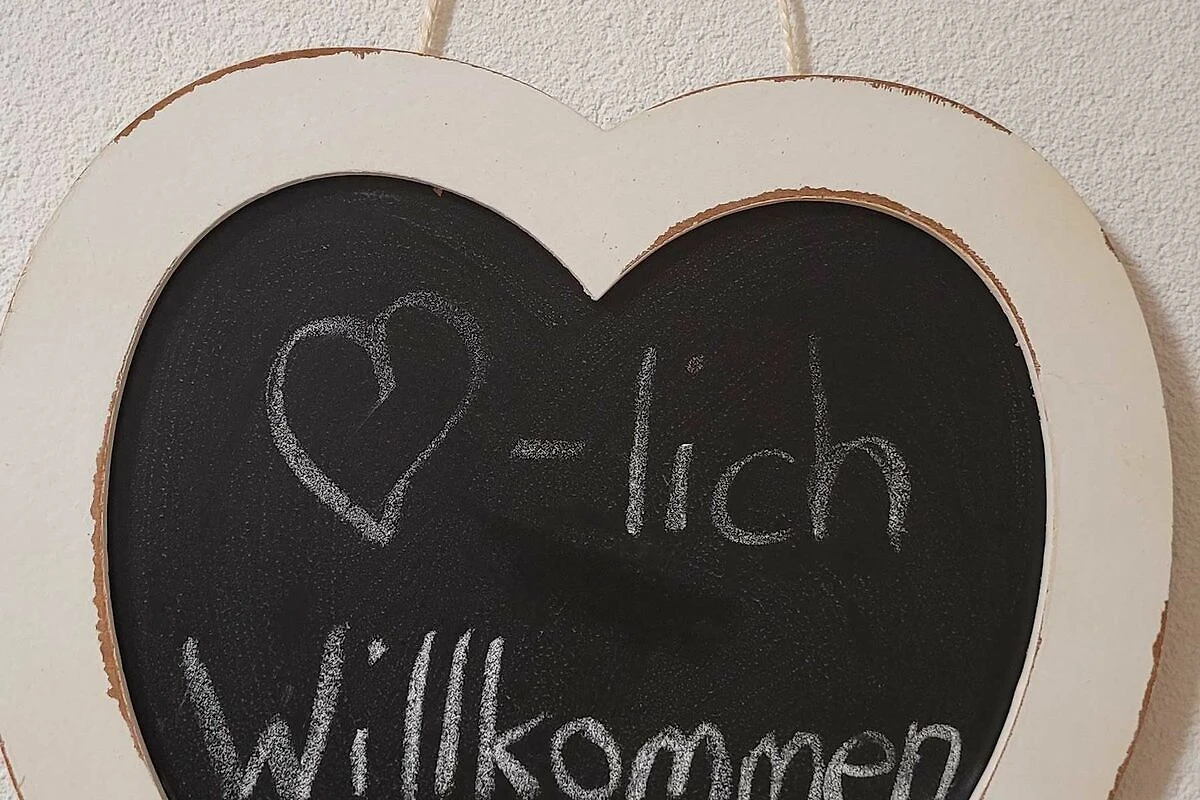 ♡-lich
Willkommen